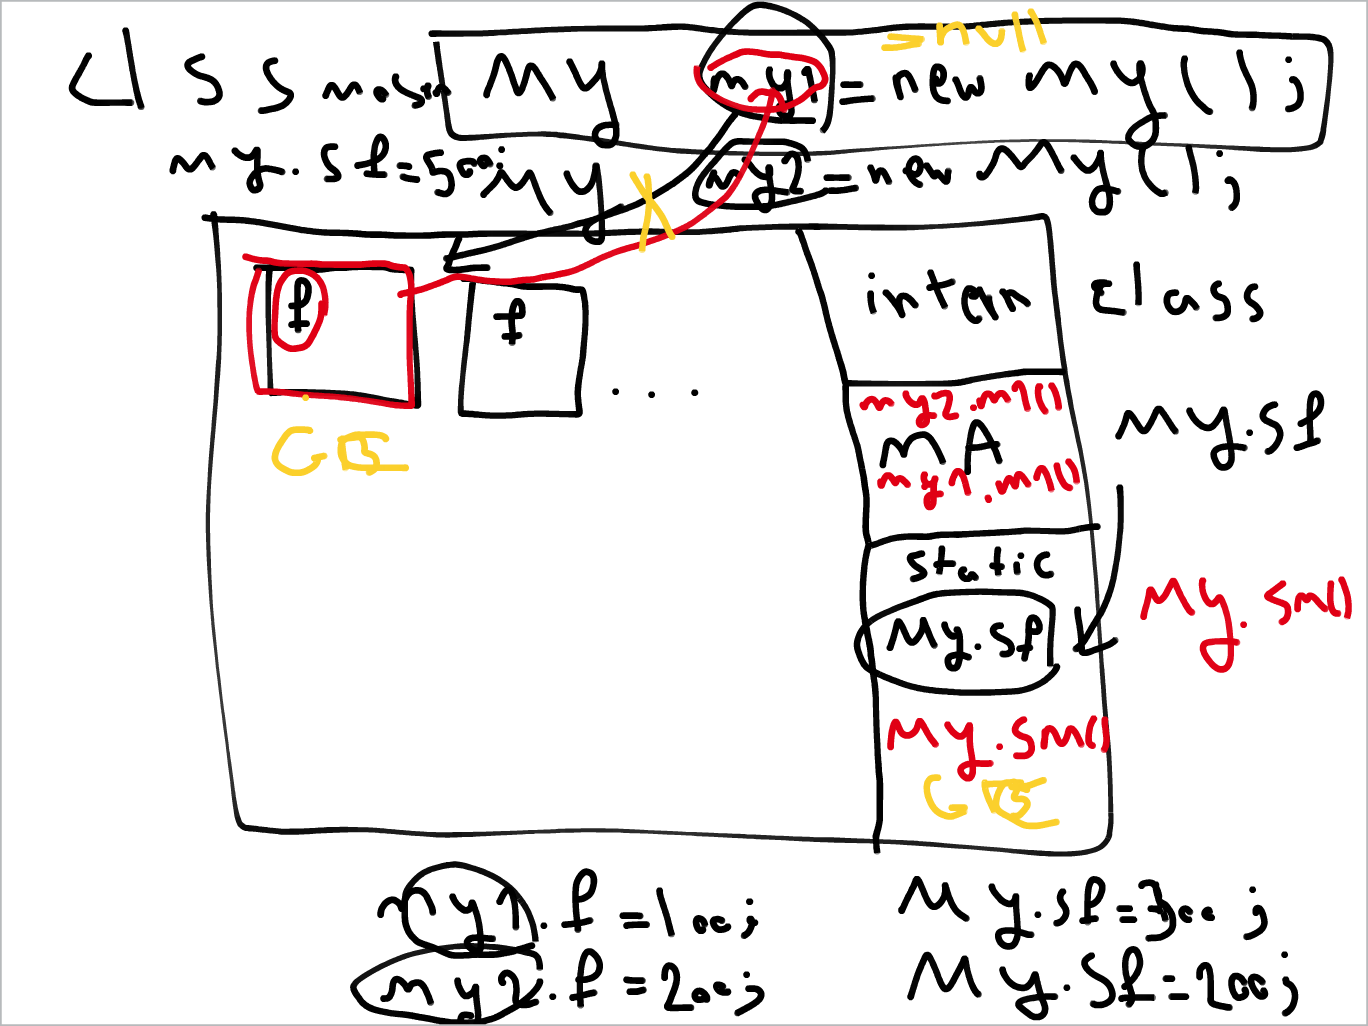 =null
my my1 = new my();
my.sf=500;
my my2=new My();
f
f
. . .
intern class
my2.m1()
MA
my1.m1()
My.sf
static
My.sf
My.sm()
My.sm()
my1.f=100;
my2.f=200;
My.sf=300;
My.sf=200;